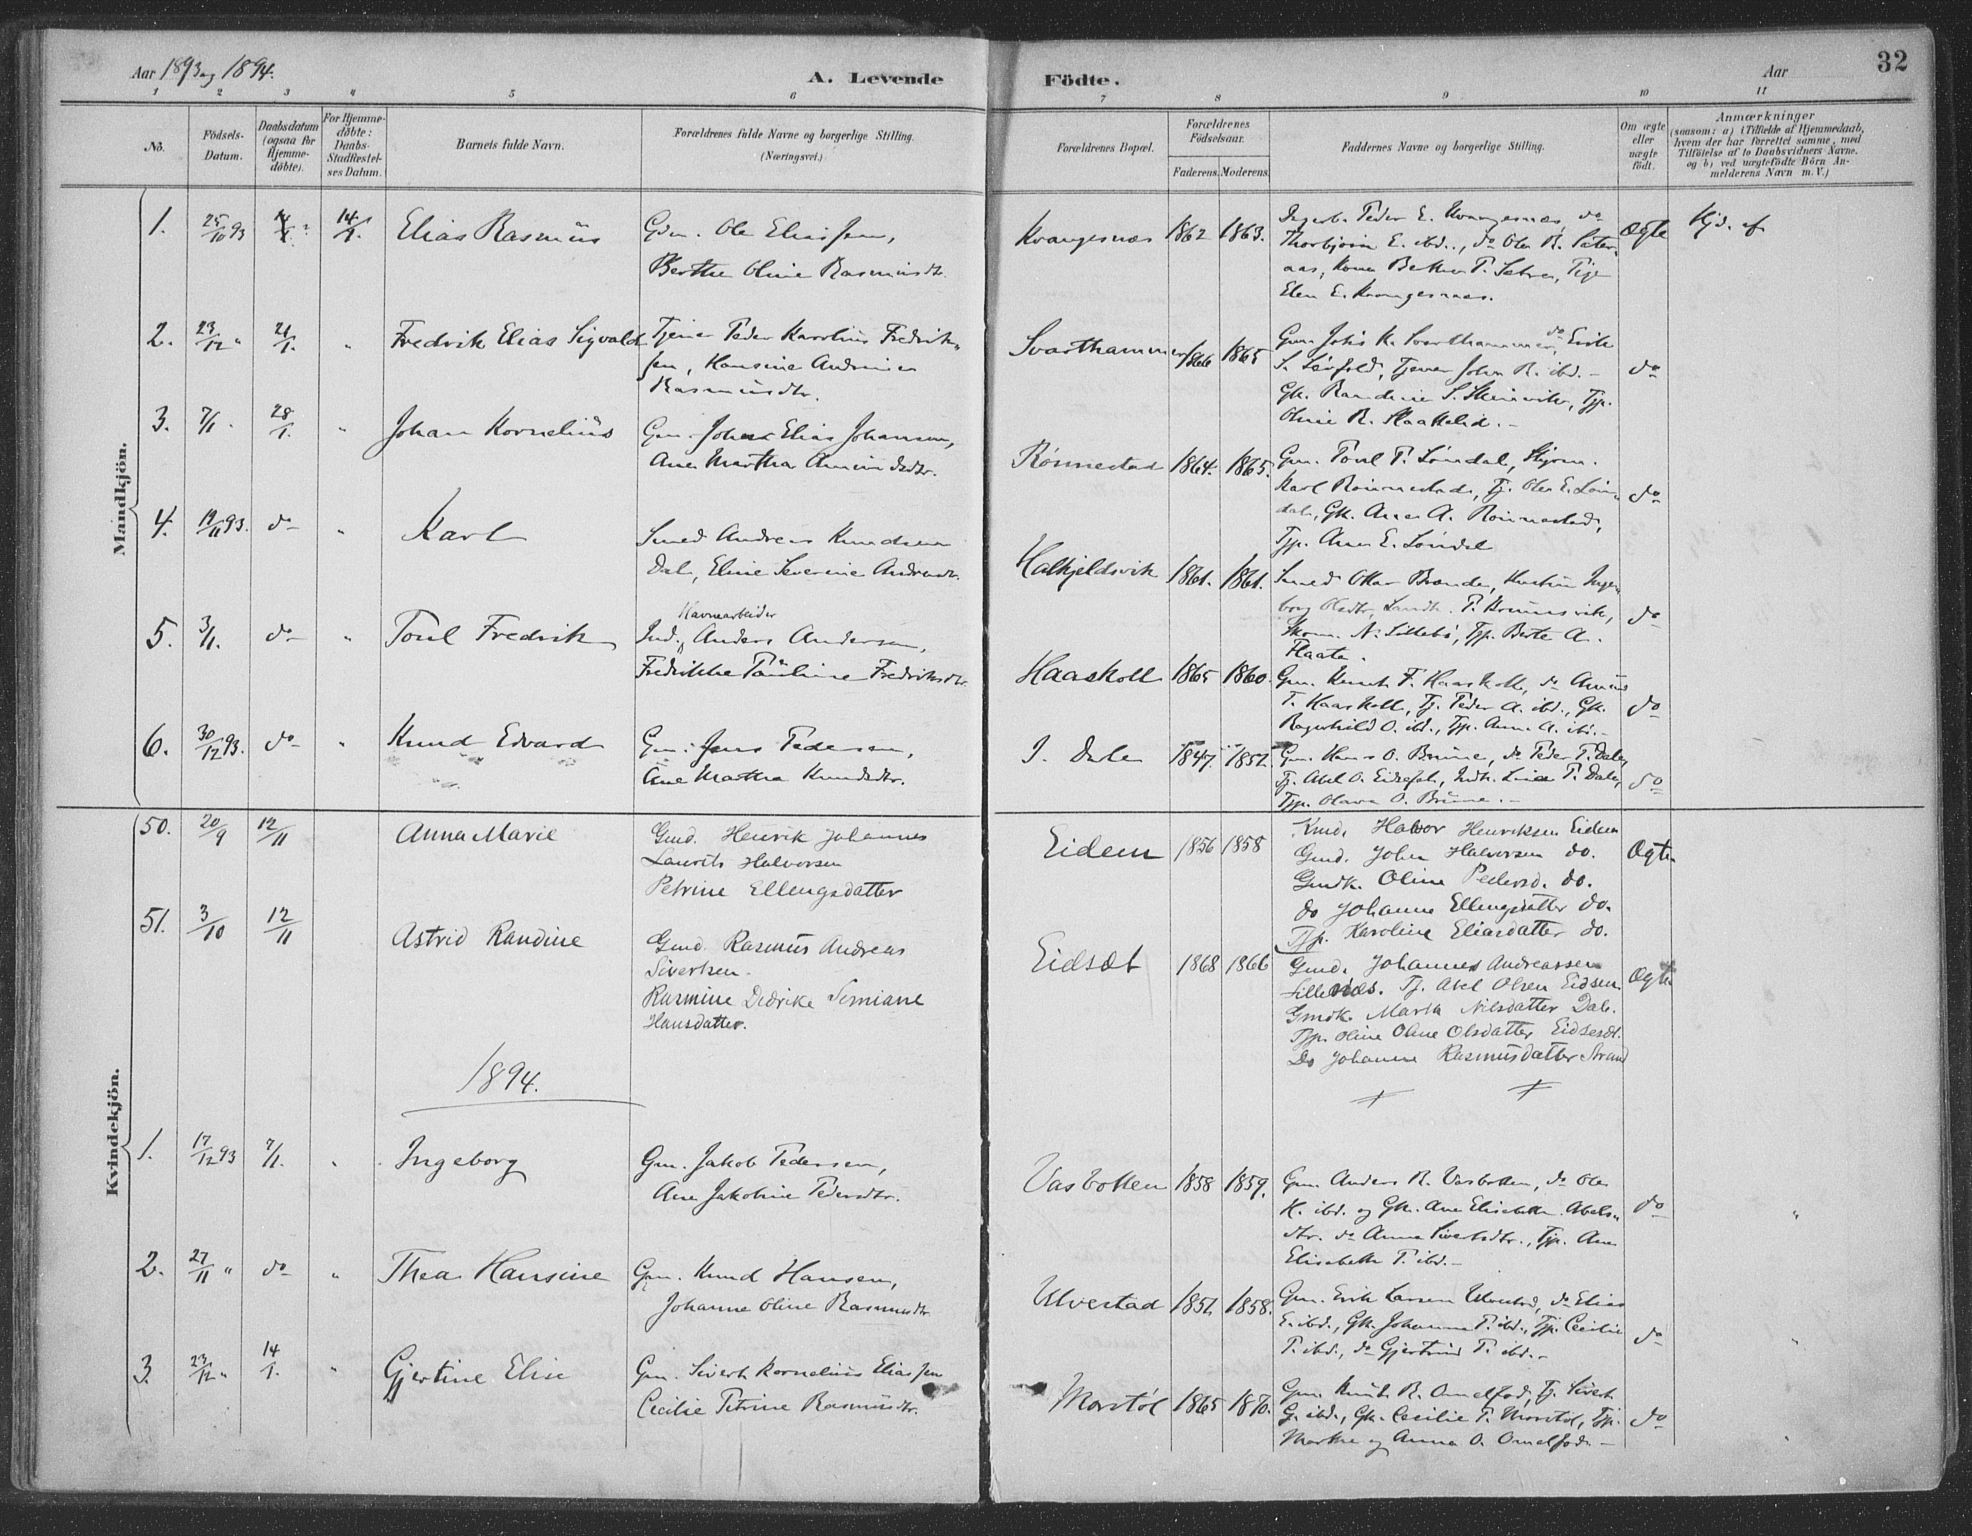 Aar 1893 og 1894.
A. Levende Födte.
Aar
32
1 2 3 4 5 6 7 8 9 10 11
No.
Födsels-Datum.
Daabsdatum (ogsaa for Hjemme-döbte).
For Hjemme-döbte: Daabs-Stadfæstel-ses Datum.
Barnets fulde Navn.
Forældrenes fulde Navne og borgerlige Stilling. (Næringsvei.)
Forældrenes Bopæl.
Forældrenes Födselsaar.
Faderens. Moderens.
Faddernes Navne og borgerlige Stilling.
Om ægte eller uægte födt.
Anmærkninger
(saasom: a) i Tilfælde af Hjemmedaab, hvem der har forrettet samme, med Tilföielse af to Daabsvidners Navne. og b) ved uægtefödte Börn Anmelderens Navn m. V.)
Mandkjön.
1. 25/10 93 14/1. Elias Rasmus Gdm. Ole Eliassen,
Berthe Oline Rasmusdtr.
Kvangesnæs 1862 1863.
Thorbjørn E. ibd., do Ole R. Sæter-
aas, Kone
Elen E. Kvangesnæs.
Ægte Hjd. af
2. 23/12 " 21/1. " Fredrik Elias Sigvald Tjener Peder Karolius Fredrik-
sen, Hansine Andrine
Rasmusdtr.
Svarthammer 1866 1865
Gm. Johs K. Svarthammer, do Erik
S. Løvfold, Tjener Johan R. ibd. -
Gk. Randine S. Steinsvik, Tjp.
Oline R. Flaaskjed. -
do
3. 7/1. 28/1. " Johan Kornelius Gm. Johan Elias Johansen,
Ane Martha Amundsdtr.
Rønnestad 1864. 1865.
Gm. Poul P. Løndal,
Karl Rønnestad, Tj. Ole E. Løn-
dal, Gk. Ane A. Rønnestad,
Tjp. Ane E. Løndal
do
4. 19/11 93. do " Karl Smed Andreas Knudsen
Dal, Eline Severine Andrsdtr.
Halkjeldsvik 1861. 1861.
Smed Ottar Brænde, Hustru Inge-
borg Olsdtr,
N. Lillebø, Tjp. Berte A.
Flaate.
do
5. 3/1. do " Poul Fredrik Havnearbeider
Ind. Anders Andersen,
Fredrikke Pauline Fredriksdtr.
Haaskoll 1865 1860.
Gm. Knut F. Haaskoll, do Amund
T. Haaskoll, Tj. Peder A. ibd., Gk.
Ragnhild O. ibd., Tjp. Anne A. ibd. -
do
6. 30/12 93. do " Knud Edvard Gm. Jens Pedersen,
Ane Martha Knudsdtr.
I. Dale 1847. 1852.
Gm. Hans O. Brune, do Peder T. Dale,
Tj. Abel O. Eidsæt, Indk. Lina P. Dale,
Tjp. Olava O. Brune. -
do
Kvindekjön.
50. 20/9 12/11 Anna Marie Gmd. Henrik Johannes
Laurits Halvorsen
Petrine Ellengsdatter
Eidem 1856 1858
Kmd. Halvor Henriksen Eidem
Gmd. Johan Halvorsen do.
Gmdk. Oline Pedersd. do.
do Johanne Ellengsdatter do.
Tjp. Karoline Eliasdatter do.
Ægte
51. 3/10 12/11 Astrid Randine Gmd. Rasmus Andreas
Sivertsen.
Rasmine Didrike Semiane
Hansdatter.
Eidsæt 1868 1866
Gmd. Johannes Andreassen
Lillenæs. Tj. Abel Olsen Eidsem.
Gmdk. Marta Nilsdatter Dale.
Tjp. Oline Olave Olsdatter Eidseset.
Do Johanne Rasmusdatter Strand
Ægte
1894.
1. 17/12 93 7/1. " Ingeborg Gm. Jakob Pedersen,
Ane Jakobine Pedersdtr.
Vasbotten 1858 1859.
Gm. Anders R. Vasbotten, do Ole
K. ibd. og Gk. Ane Elisabeth Abels-
dtr. do Anne Sivertsdtr., Tjp. Ane
Elisabeth T. ibd. -
do "
2. 27/11 " do " Thea Hansine Gm. Knud Hansen,
Johanne Oline Rasmusdtr.
Ulvestad 1851 1858.
Gm. Erik Larsen Ulvestad, do Elias
E. ibd., Gk. Johanne P. ibd., Tjp. Cecilie
P. ibd., do Gjertrud P. ibd. -
do "
3. 23/12 " 14/1. " Gjertine Elise Gm. Sivert Kornelius Eliassen
Cecilie Petrine Rasmusdtr.
Morstøl 1865 1870.
Gm. Knut R. Omelfod, Tj. Sivert
G. ibd., Gk. Cecilie P. Morstøl, Tjp.
Marthe og Anna O. Omelfod. -
do "